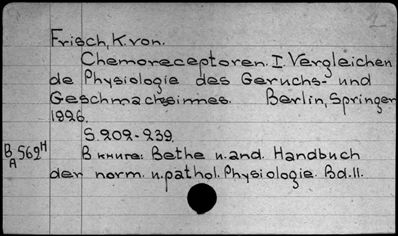 Frisch, K. von.
Chemoreceptoren. I. Vergleichen
de Physiologie des Geruchs- und
Geschmacksinnes. Berlin, Springer
1926.
S. 202-239
B 562H
A
В книге: Bethe u. and. Handbuch
der norm. u. pathol. Physiologie. Bd. II.